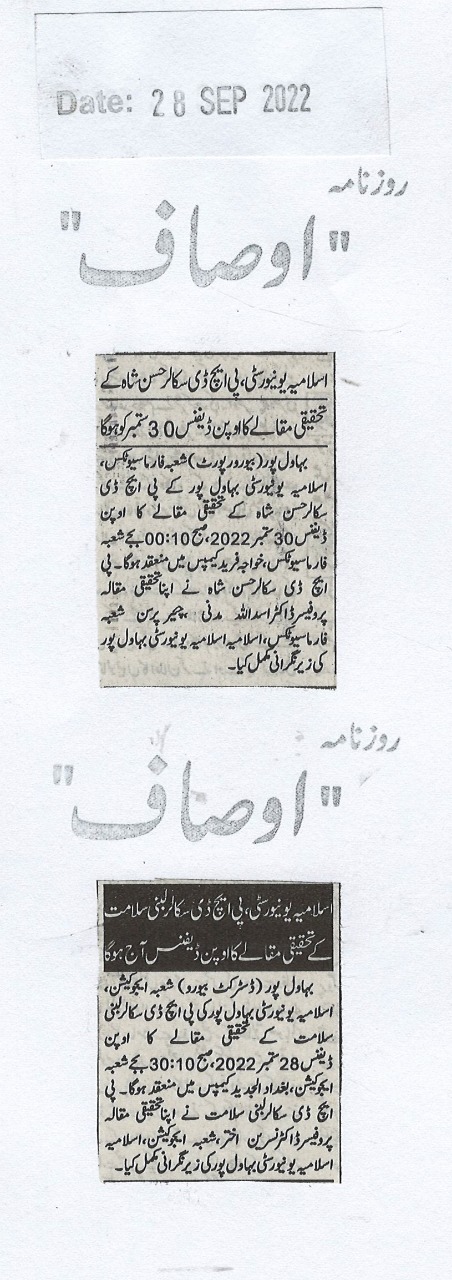 Date: 28 SEP 2022
روزنامہ
"اوصاف"
اسلامیہ یونیورسٹی، پی ایچ ڈی سکالر حسن شاہ کے
تحقیقی مقالے کا اوپن ڈیفنس 30 ستمبر کو ہوگا
بہاول پور (بیورورپورٹ) شعبہ فارماسیوٹکس،
اسلامیہ یونیورسٹی بہاول پور کے پی ایچ ڈی
سکالر حسن شاہ کے تحقیقی مقالے کا اوپن
ڈیفنس 30 ستمبر 2022، صبح 00:10 بجے شعبہ
فارماسیوٹکس، خواجہ فرید کیمپس میں منعقد ہوگا۔ پی
ایچ ڈی سکالر حسن شاہ نے اپنا تحقیقی مقالہ
پروفیسر ڈاکٹر اسد اللہ مدنی، چیئر پرسن شعبہ
فارماسیوٹکس، اسلامیہ اسلامیہ یونیورسٹی بہاول پور
کی زیر نگرانی مکمل کیا۔
روزنامہ
"اوصاف"
اسلامیہ یونیورسٹی، پی ایچ ڈی سکالر لبنیٰ سلامت
کے تحقیقی مقالے کا اوپن ڈیفنس آج ہوگا
بہاول پور (ڈسٹرکٹ بیورو) شعبہ ایجوکیشن،
اسلامیہ یونیورسٹی بہاول پور کی پی ایچ ڈی سکالر لبنیٰ
سلامت کے تحقیقی مقالے کا اوپن
ڈیفنس 28 ستمبر 2022، صبح 30:10 بجے شعبہ
ایجوکیشن، بغداد الجدید کیمپس میں منعقد ہوگا۔ پی
ایچ ڈی سکالر لبنیٰ سلامت نے اپنا تحقیقی مقالہ
پروفیسر ڈاکٹر نسرین اختر، شعبہ ایجوکیشن، اسلامیہ
اسلامیہ یونیورسٹی بہاول پور کی زیر نگرانی مکمل کیا۔